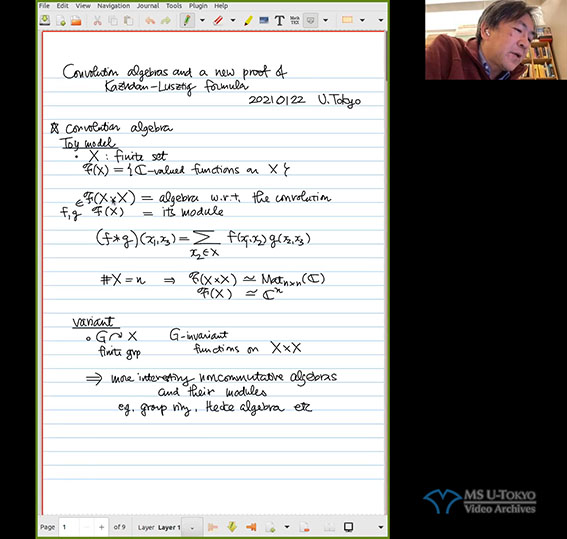 File Edit View Navigation Journal Tools Plugin Help
Convolution algebras and a new proof of
Kazhdan-Lusztig formula
20210122 U.Tokyo
☆ convolution algebra
Toy model
• X : finite set
F(X) = { ℂ-valued functions on X }
∈ F(X×X) = algebra w.r.t. the convolution
f, g F(X) = its module
(f*g)(x₁,x₃) = ∑ f(x₁,x₂) g(x₂,x₃)
x₂∈X
#X = n ⇒ F(X×X) ≃ Matₙₓₙ(ℂ)
F(X) ≃ ℂⁿ
variant
• G ↷ X G-invariant
finite grp functions on X×X
⇒ more interesting noncommutative algebras
and their modules
eg. group ring, Hecke algebra etc
Page 1 of 9 Layer Layer 1
MS U-TOKYO
Video Archives